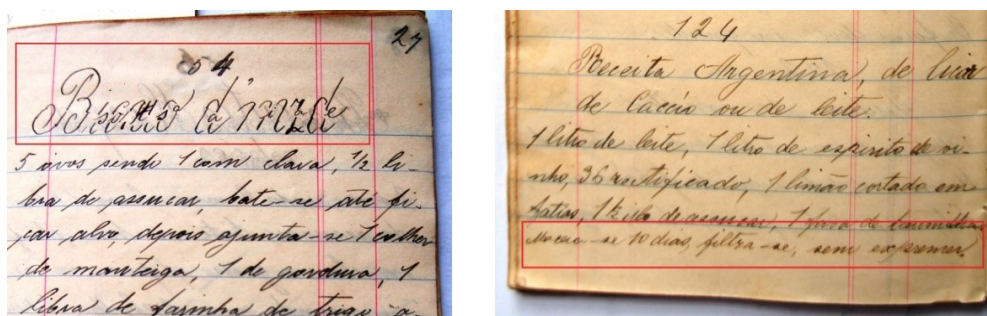 27
54
Biscouto d'
5 ovos sendo 1 com clara, 1/2 li-
bra de assucar, bate-se até fi-
car alvo, depois ajunta-se 1 colher
de manteiga, 1 de gordura, 1
libra de farinha de trigo a-
124
Receita Argentina, de licor
de Caccáo ou de leite.
1 litro de leite, 1 litro de espirito de vi-
nho, 36 rectificado, 1 limão cortado em
fatias, 1 kilo de assucar, 1 fava de baunilha.
Macera-se 10 dias, filtra-se, sem expremer.